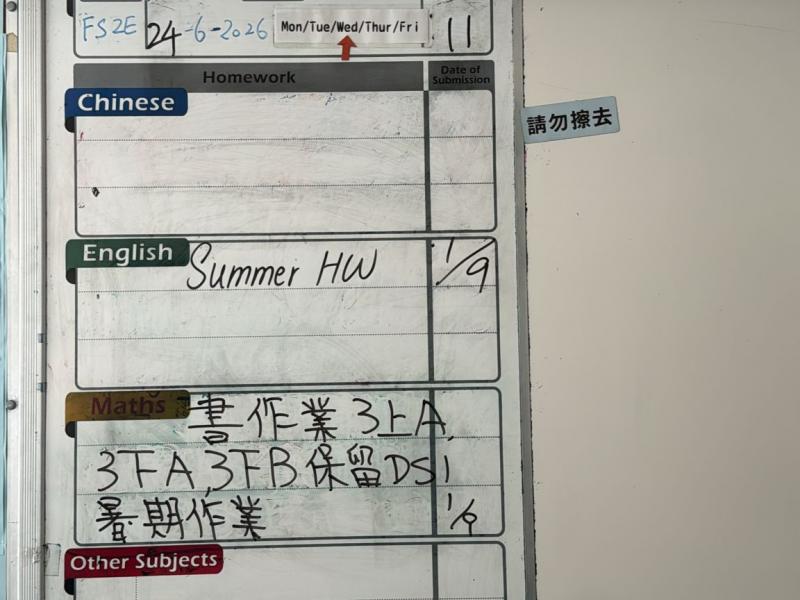 FS2E 24-6-2026 Mon/Tue/Wed/Thur/Fri 11
Homework Date of Submission
Chinese
請勿擦去
English Summer HW 1/9
Maths 書作業 3上A,
3下A,3下B保留DSI
暑期作業 1/9
Other Subjects